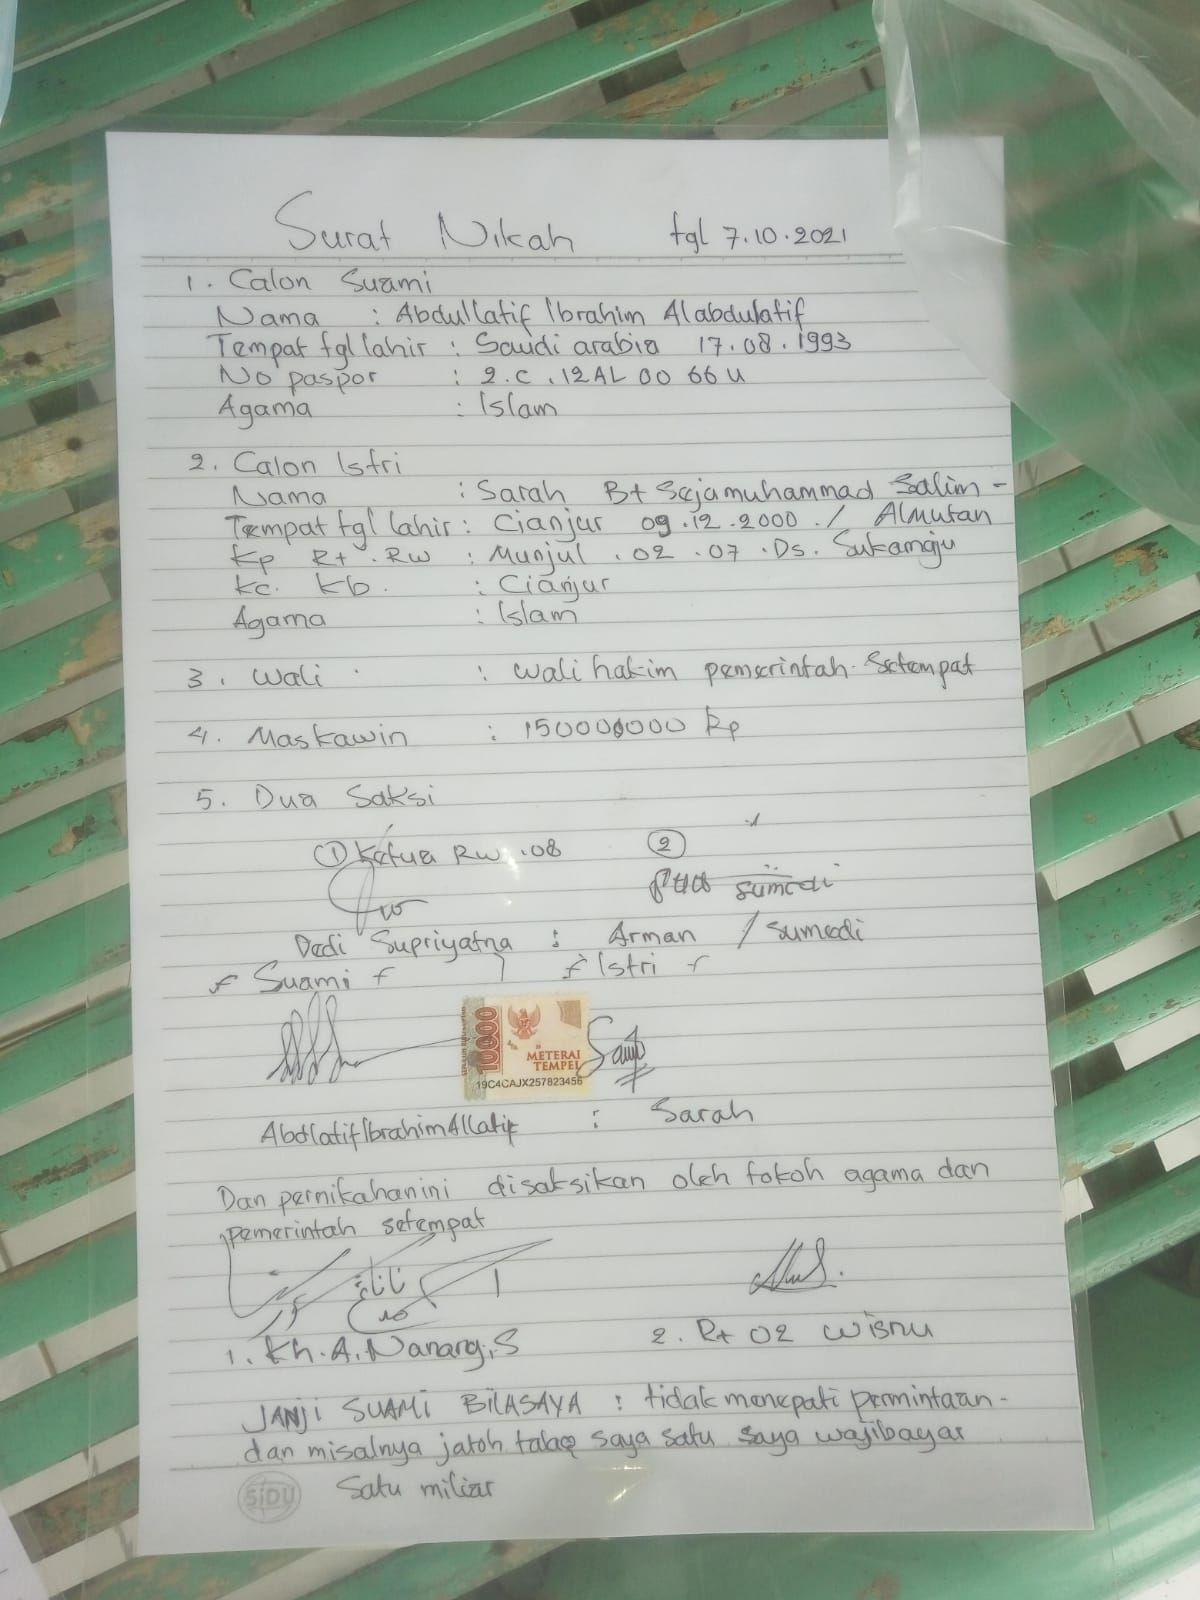 Surat Nikah tgl 7.10.2021
1. Calon Suami
Nama : Abdullatif Ibrahim Alabdulatif
Tempat tgl lahir : Saudi arabia 17.08.1993
No paspor : 2.C.12AL 00 66 U
Agama : Islam
2. Calon Istri
Nama : Sarah Bt Sejamuhammad Salim -
Tempat tgl lahir : Cianjur 09.12.2000 ./ Almutan
Kp Rt . RW : Munjul . 02 . 07 . Ds. Sukamaju
Kc. Kb. : Cianjur
Agama : Islam
3. Wali : Wali hakim pemerintah setempat
4. Maskawin : 150000000 Rp
5. Dua Saksi
① Ketua RW .08 ②
sumedi
Dedi Supriyatna : Arman / Sumedi
Suami Istri
10000
METERAI
TEMPEL
19C4CAJX257823456
Abdlatif Ibrahim Allatif : Sarah
Dan pernikahan ini disaksikan oleh tokoh agama dan
pemerintah setempat
1. Kh. A. Nanang, S 2. Rt 02 Wisnu
JANJI SUAMI BILASAYA : tidak menepati permintaan -
dan misalnya jatoh talaq saya satu saya wajibayar
SiDU Satu miliar